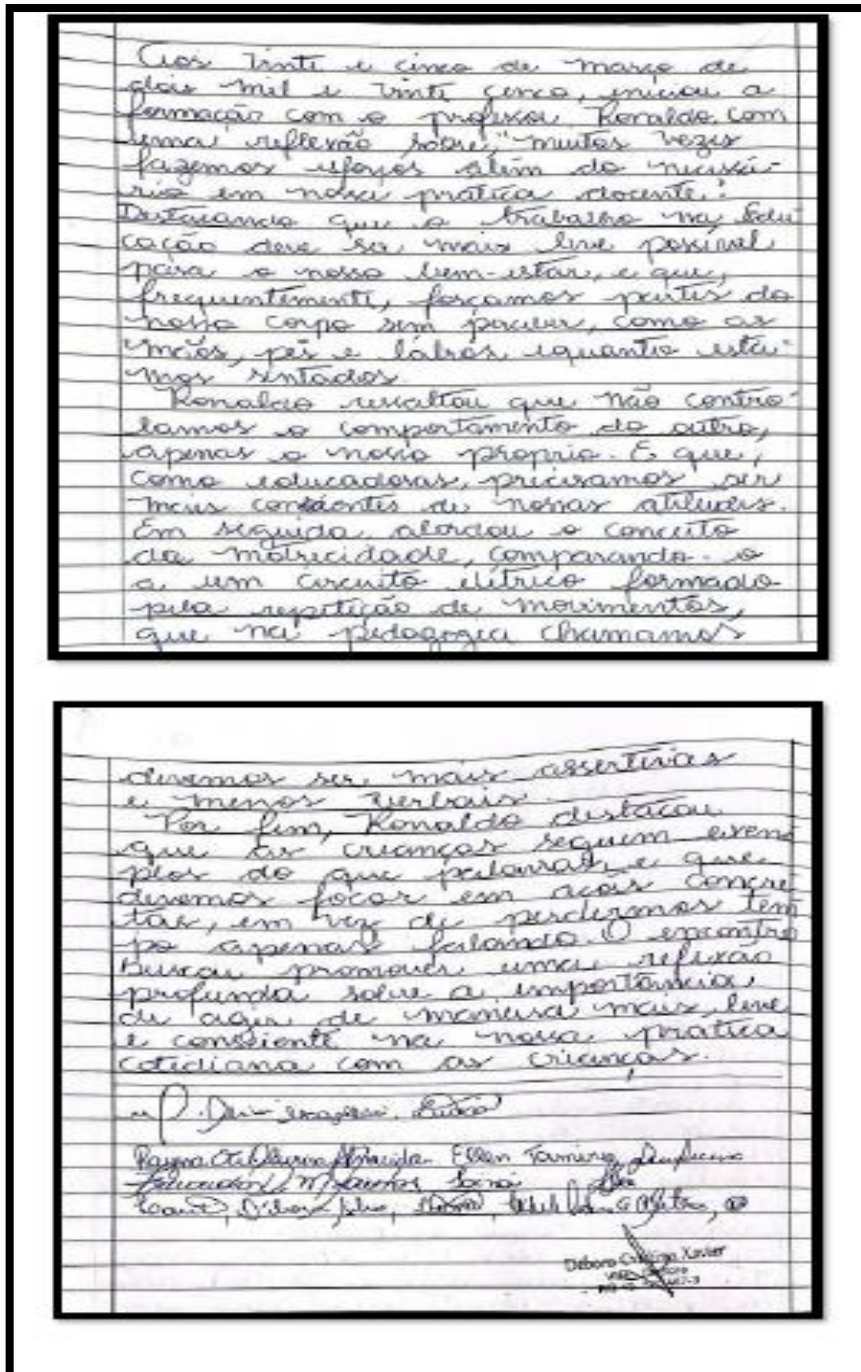 Aos vinte e cinco de março de
dois mil e vinte cinco, iniciou a
formação com o professor Ronaldo com
uma reflexão sobre, "muitas vezes
fazemos esforços além do necessá-
rio em nossa pratica docente".
Destacando que o trabalho na Edu-
cação deve ser mais leve possivel
para o nosso bem-estar, e que,
frequentemente, forçamos partes do
nosso corpo sem perceber, como as
mãos, pés e lábios, equanto esta-
mos sentados.
Ronaldo ressaltou que não contro-
lamos o comportamento do outro,
apenas o nosso próprio. E que,
como educadoras, precisamos ser
mais conscientes de nossas atitudes.
Em seguida, abordou o conceito
da motricidade, comparando-o
a um circuito elétrico formado
pela repetição de movimentos,
que na pedagogia chamamos
devemos ser mais assertivas
e menos verbais.
Por fim, Ronaldo destacou
que as crianças seguem exem
plos do que palavras, e que
devemos focar em ações concre
tas, em vez de perdermos tem
po apenas falando. O encontro
buscou promover uma reflexão
profunda sobre a importância
de agir de maneira mais leve
e consciente na nossa pratica
cotidiana com as crianças.
Ellen Tamires
Debora Cristina Xavier